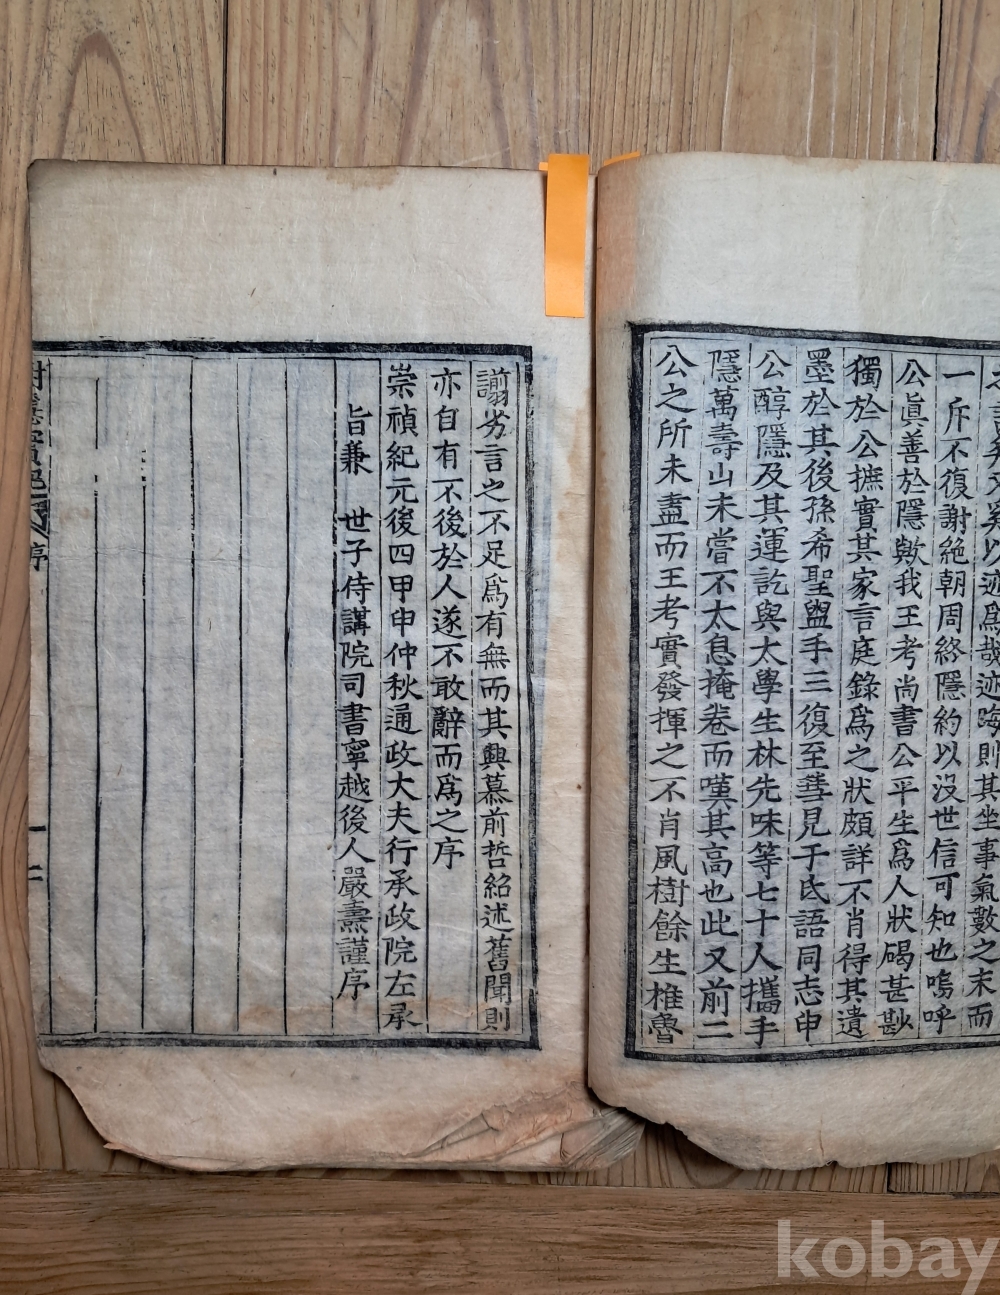 之言矣又奚以迹爲哉迹晦則其坐事氣數之末而
一斥不復謝絶朝周終隱約以沒世信可知也嗚呼
公眞善於隱歟我王考尚書公平生爲人狀碣甚尠
獨於公摭實其家言庭錄爲之狀頗詳不肖得其遺
墨於其後孫希聖盥手三復至彛見于氏語同志申
公醇隱及其運訖與太學生林先味等七十人攜手
隱萬壽山未嘗不太息掩卷而嘆其高也此又前二
公之所未盡而王考實發揮之不肖風樹餘生椎魯
謭劣言之不足爲有無而其興慕前哲紹述舊聞則
亦自有不後於人遂不敢辭而爲之序
崇禎紀元後四甲申仲秋通政大夫行承政院左承
旨兼 世子侍講院司書寧越後人嚴燾謹序
序
二
kobay